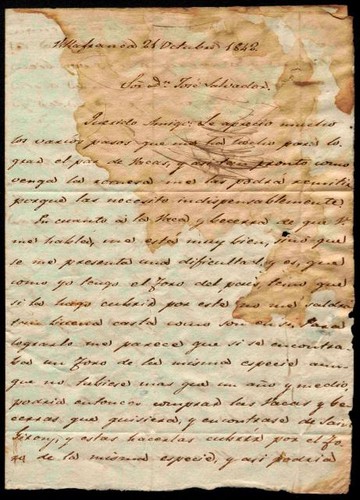 Villafranca 21 Octubre 1842.
Sor. Dn. José Salvador.
Querido Amigo: Le aprecio mucho
los varios pasos que me ha hecho para lo
grar el par de Vacas, y asi tan pronto como
venga la me las podrá remitir
porque las necesito indispensablemente.
En cuanto á la Vaca y becerra de que V.
me habla, me está muy bien, sino que
se me presenta una dificultad, y es, que
como yo tengo el Toro del pais, temo que
si la hago cubrir por este no me saldrá
tan buena casta como son en su
lograrlo me parece que si se encontra
sa un Toro de la misma especie aun
que no tubiese mas que un año y medio,
podria entonces comprar las Vacas y be
cerras que quisiera, y encontrase de San
y estas hacerlas cubrir por el To
ro de la misma especie, y asi podria